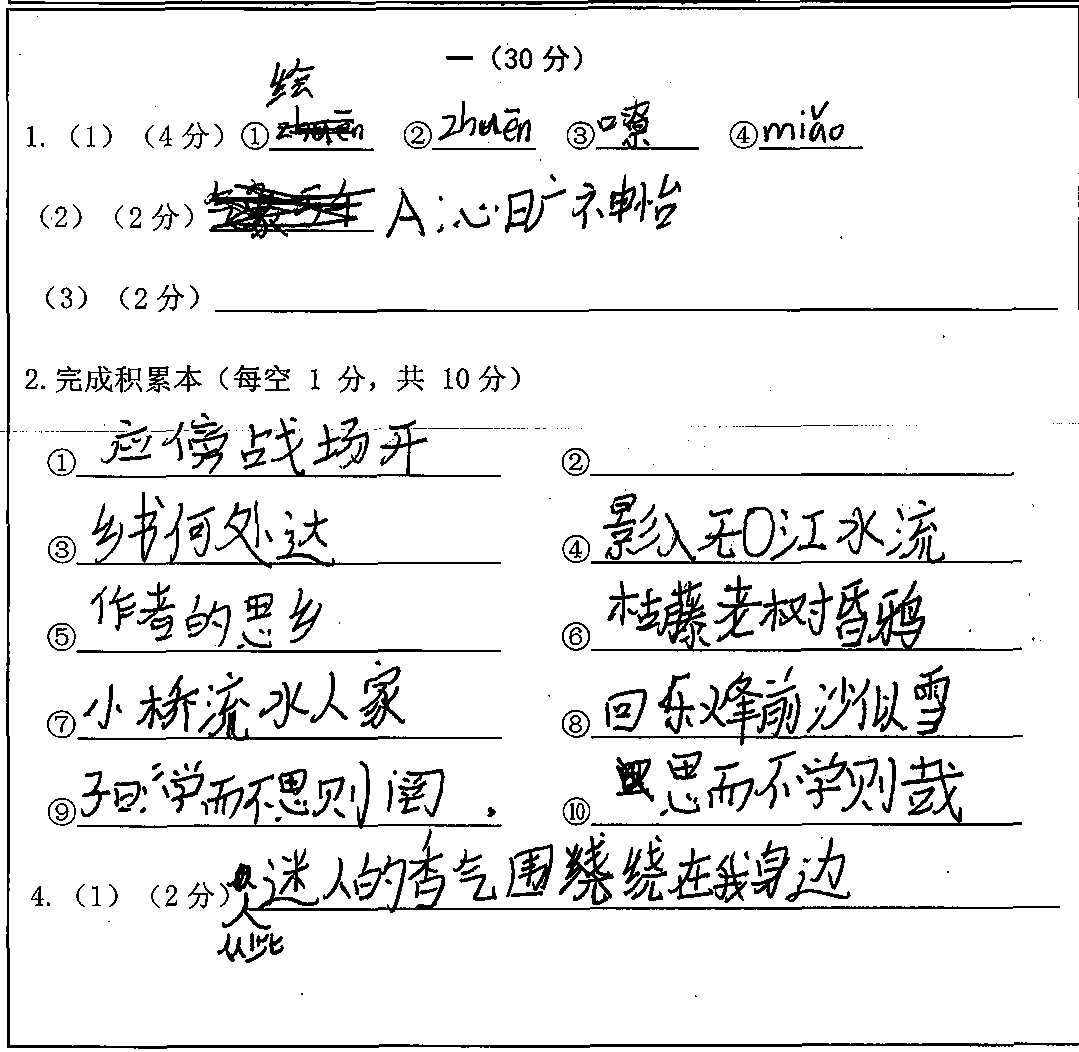 一（30 分）
绘
1.（1）（4 分）① ② zhuēn ③ 嘹 ④ miǎo
（2）（2 分） A：心旷神怡
（3）（2 分）
2.完成积累本（每空 1 分，共 10 分）
① 应傍战场开 ②
③ 乡书何处达 ④ 影入无口江水流
⑤ 作者的思乡 ⑥ 枯藤老树昏鸦
⑦ 小桥流水人家 ⑧ 回乐烽前沙似雪
⑨ 子曰：学而不思则 ⑩ 思而不学则哉
4.（1）（2 分） 迷人的香气围绕在我身边
从此